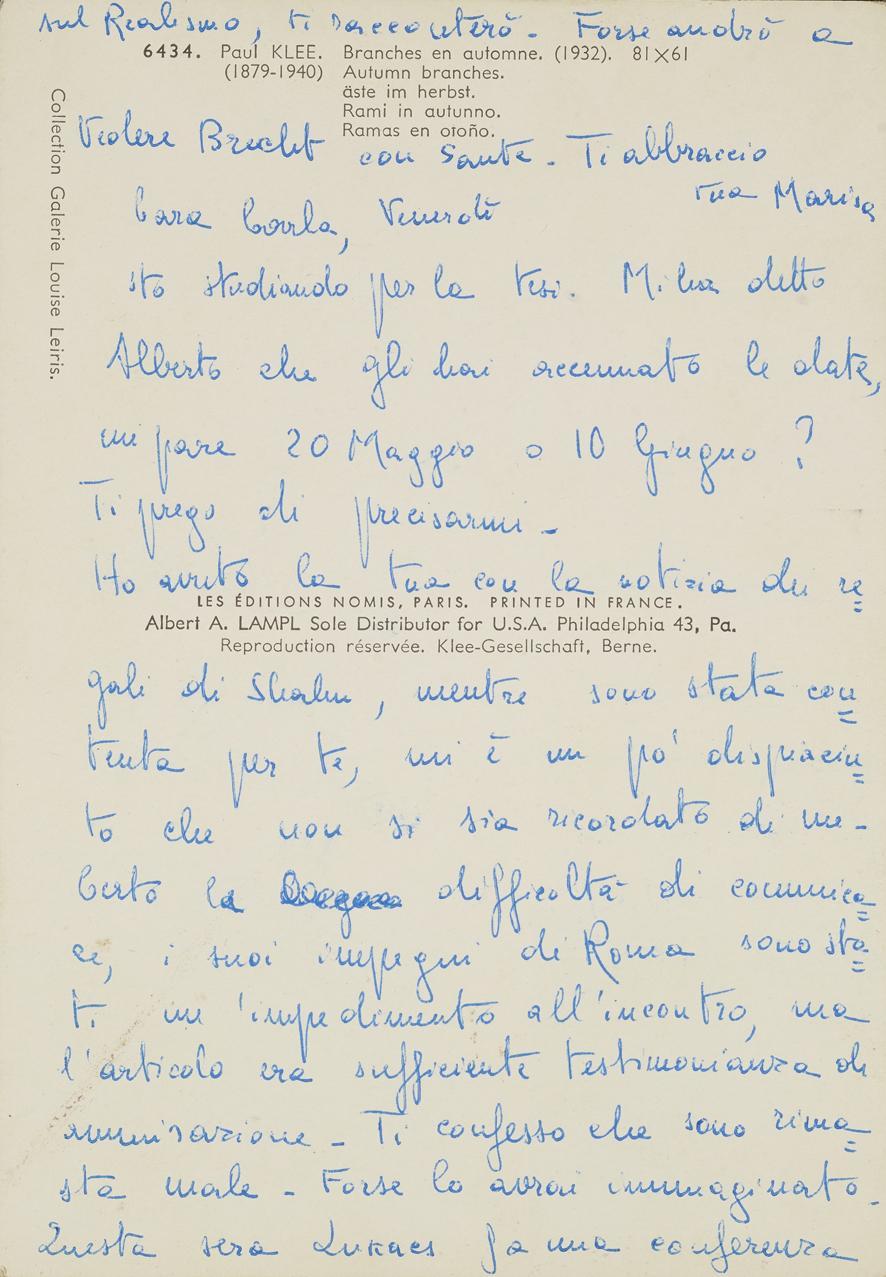 sul Realismo, ti racconterò - Forse andrò a
6434. Paul KLEE. Branches en automne. (1932). 81X61
(1879-1940) Autumn branches.
äste im herbst.
Rami in autunno.
Ramas en otoño.
Collection Galerie Louise Leiris.
Vedere Brecht con Sante - Ti abbraccio
tua Marisa
Cara Carla, Venerdì
sto studiando per la tesi. Mi ha detto
Alberto che gli hai accennato le date,
mi pare 20 Maggio o 10 Giugno ?
Ti prego di precisarmi -
Ho avuto la tua con la notizia dei re=
LES ÉDITIONS NOMIS, PARIS. PRINTED IN FRANCE.
Albert A. LAMPL Sole Distributor for U.S.A. Philadelphia 43, Pa.
Reproduction réservée. Klee-Gesellschaft, Berne.
gali di Shahn, mentre sono stata con=
tenta per te, mi è un po' dispiaciu=
to che non si sia ricordato di me -
Certo la difficoltà di comunica=
re, i suoi impegni di Roma sono sta=
ti un'impedimento all'incontro, ma
l'articolo era sufficiente testimonianza di
ammirazione - Ti confesso che sono rima=
sta male - Forse lo avrai immaginato -
Questa sera Lukacs fa una conferenza